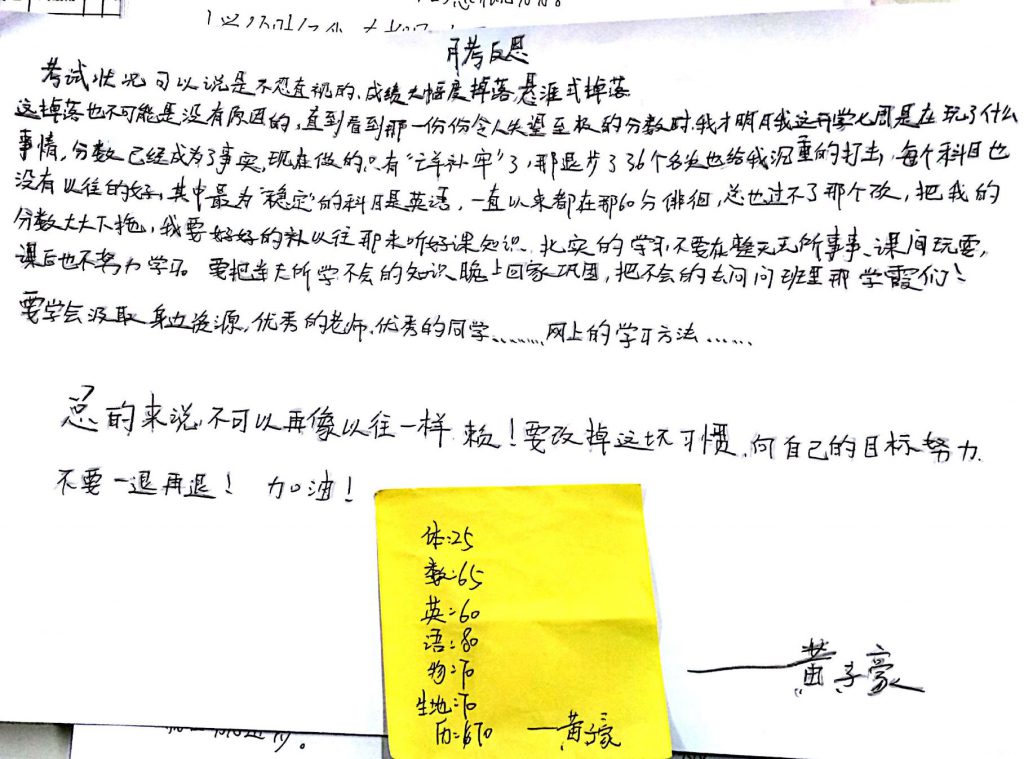 月考反思
考试状况可以说是不忍直视的、成绩大幅度掉落,悬涯式掉落
这掉落也不可能是没有原因的,直到看到那一份份令人失望至极的分数时,我才明白我这开学七周是在玩了什么
事情,分数已经成为了事实,现在做的只有“亡羊补牢”了,那退步了36个名次也给我沉重的打击,每个科目也
没有以往的好,其中最为“稳定”的科目是英语,一直以来都在那60分俳徊,总也过不了那个坎,把我的
分数大大下拖,我要好好的补以往那来听好课知识、扎实的学习不要在整天无所事事、课间玩耍,
课后也不努力学习。要把当天所学不会的知识晚上回家巩固,把不会的去问问班里那学霞们!
要学会汲取身边资源,优秀的老师、优秀的同学……网上的学习方法……
总的来说,不可以再像以往一样赖!要改掉这坏习惯,向自己的目标努力
不要一退再退! 加油!
体:25
数:65
英:60
语:80
物:70
生地:70
历:70
——黄子豪
——黄子豪